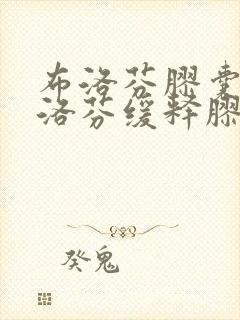 布洛芬胶囊
洛芬缓释胶
癸鬼